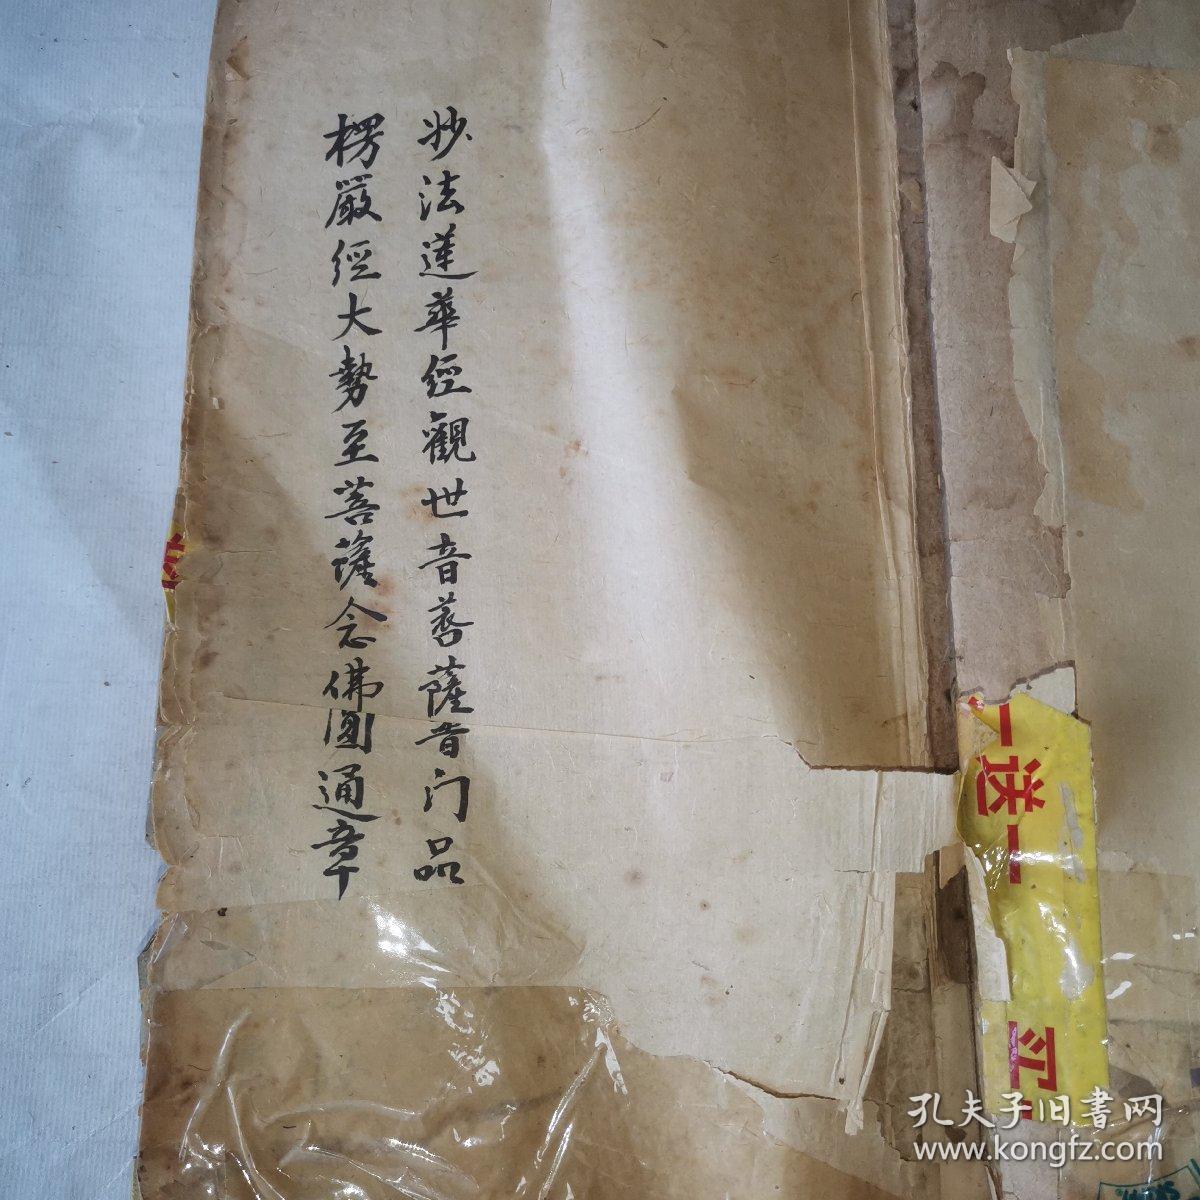 妙法莲華經觀世音菩薩普门品
楞嚴經大勢至菩薩念佛圆通章
一送一
买
孔夫子旧書网
www.kongfz.com